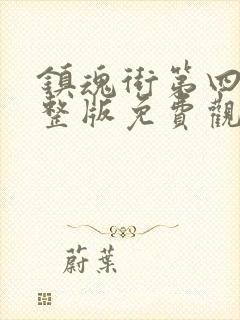 鎮魂街第四
整版免費觀
蔚葉